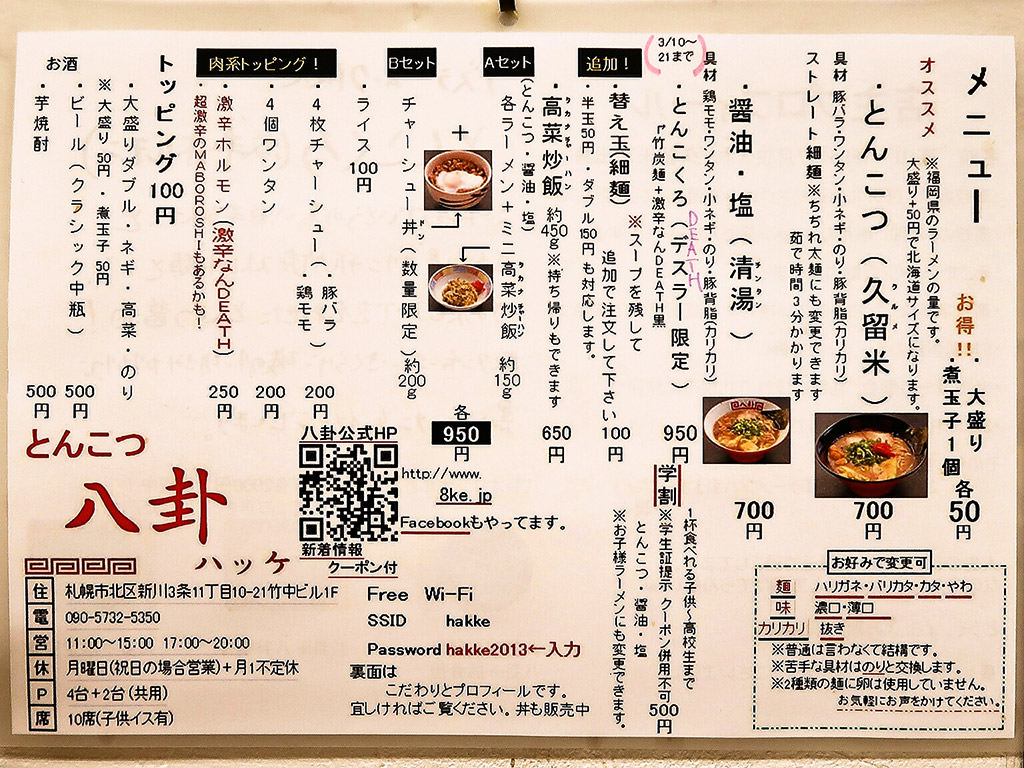 メニュー
オススメ
※福岡県のラーメンの量です。
大盛り+50円で北海道サイズになります。
お得!!
・大盛り
・煮玉子1個
各50円
・とんこつ(久留米)
クルメ
具材 豚バラ・ワンタン・小ネギ・のり・豚背脂(カリカリ)
ストレート細麺 ※ちぢれ太麺にも変更できます
茹で時間3分かかります
700円
・醤油・塩(清湯)
チンタン
具材 鶏モモ・ワンタン・小ネギ・のり・豚背脂(カリカリ)
700円
(3/10〜21まで)
・とんこくろ(デスラー限定)
DEATH
『竹炭麺+激辛なんDEATH黒
950円
追加!
・替え玉(細麺)
※スープを残して
追加で注文して下さい
100円
・半玉50円・ダブル150円も対応します。
・高菜炒飯
タカナチャーハン
約450g ※持ち帰りもできます
650円
(とんこつ・醤油・塩)
Aセット
各ラーメン+ミニ高菜炒飯
タカナチャーハン
約150g
Bセット
+
チャーシュー丼(数量限定)
ドン
約200g
各950円
・ライス100円
肉系トッピング!
・4枚チャーシュー
・豚バラ
・鶏モモ
200円
・4個ワンタン
200円
・激辛ホルモン(激辛なんDEATH)
250円
・超激辛のMABOROSHIもあるかも!
トッピング100円
・大盛りダブル・ネギ・高菜・のり
※大盛り50円・煮玉子50円
お酒
・ビール(クラシック中瓶)
500円
・芋焼酎
500円
学割
1杯食べれる子供〜高校生まで
※学生証提示 クーポン併用不可
とんこつ・醤油・塩
500円
※お子様ラーメンにも変更できます。
とんこつ
八卦
ハッケ
八卦公式HP
新着情報
クーポン付
http://www.
8ke.jp
Facebookもやってます。
住 札幌市北区新川3条11丁目10-21竹中ビル1F
電 090-5732-5350
営 11:00〜15:00 17:00〜20:00
休 月曜日(祝日の場合営業)+月1不定休
P 4台+2台(共用)
席 10席(子供イス有)
Free Wi-Fi
SSID hakke
Password hakke2013←入力
裏面は
こだわりとプロフィールです。
宜しければご覧ください。丼も販売中
お好みで変更可
麺 ハリガネ・バリカタ・カタ・やわ
味 濃口・薄口
カリカリ 抜き
※普通は言わなくて結構です。
※苦手な具材はのりと交換します。
※2種類の麺に卵は使用していません。
お気軽にお声をかけてください。